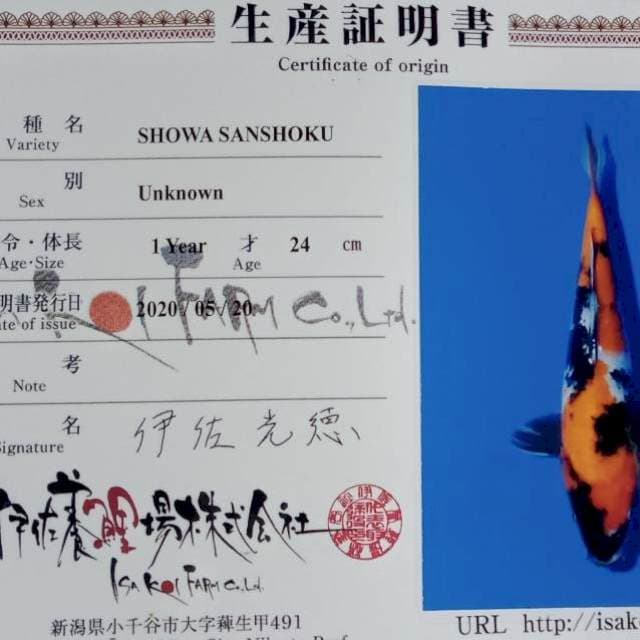 生産証明書
Certificate of origin
種 名
Variety
SHOWA SANSHOKU
別
Sex
Unknown
令・体長
Age・Size
1 Year 才
Age
24 cm
明書発行日
ate of issue
2020 / 05 / 20
KOI FARM Co., Ltd.
考
Note
名
Signature
伊佐光徳
伊佐養鯉場株式会社
ISA KOI FARM Co.Ltd.
新潟県小千谷市大字薭生甲491
URL http://isak